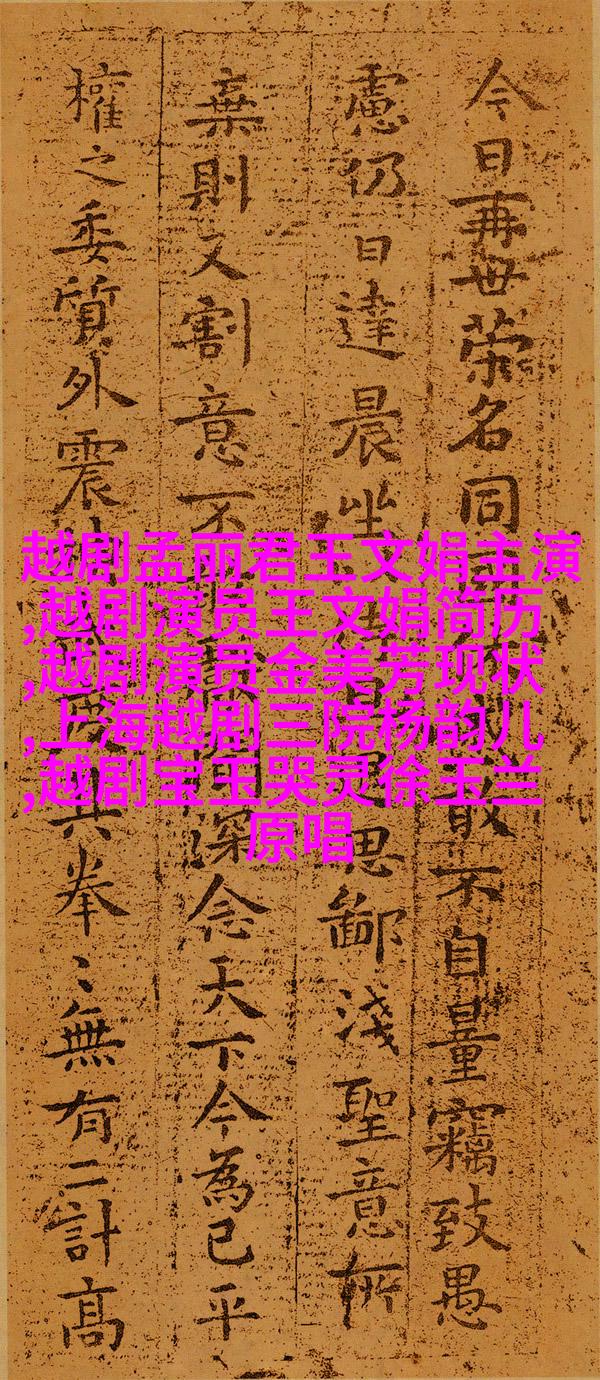 今日再世荣名同國敢不自量竊致愚
慮仍日達晨坐思鄙淺聖意所
棄則又割意不聞深念天下今為已平
權之委質外震其拳〻無有二計高
越剧孟丽君王文娟主演
,越剧演员王文娟简历
,越剧演员金美芳现状
,上海越剧三院杨韵儿
,越剧宝玉哭灵徐玉兰
原唱